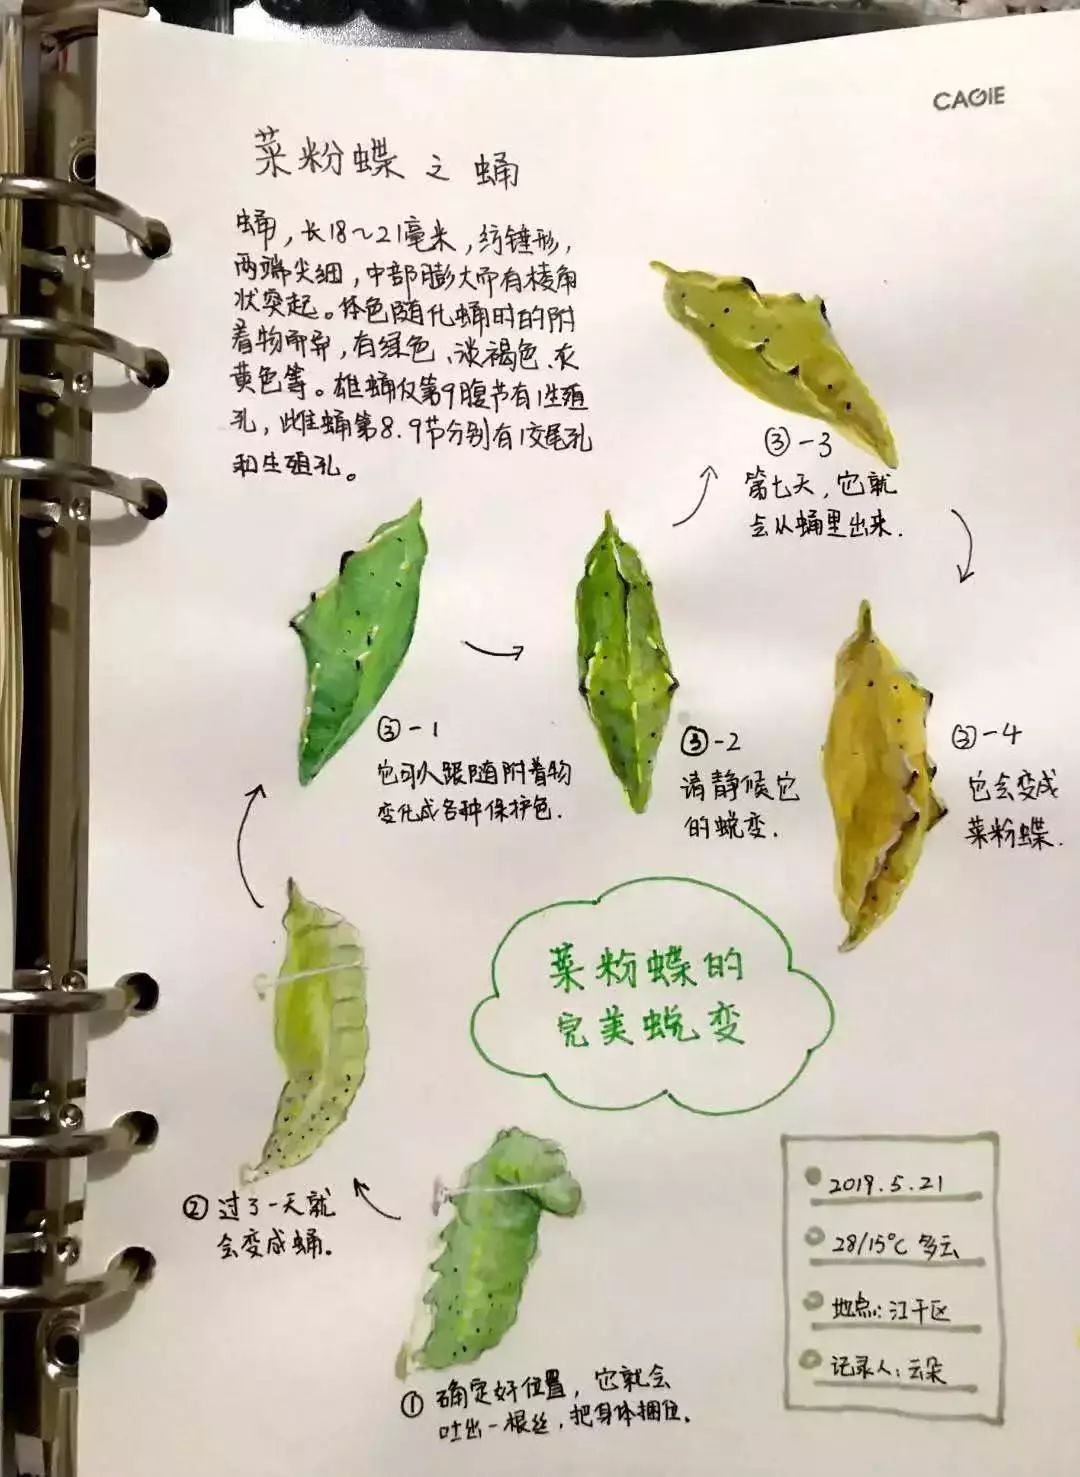 CAGIE
菜粉蝶之蛹
蛹，长18～21毫米，纺锤形，
两端尖细，中部膨大而有棱角
状突起。体色随化蛹时的附
着物而异，有绿色、淡褐色、灰
黄色等。雄蛹仅第9腹节有1生殖
孔，雌蛹第8.9节分别有1交尾孔
和生殖孔。
③-3
第七天，它就
会从蛹里出来.
③-1
它可以跟随附着物
变化成各种保护色.
③-2
请静候它
的蜕变.
③-4
它会变成
菜粉蝶.
菜粉蝶的
完美蜕变
② 过了一天就
会变成蛹。
① 确定好位置，它就会
吐出一根丝，把身体捆住。
2019.5.21
28/15℃ 多云
地点：江干区
记录人：云朵